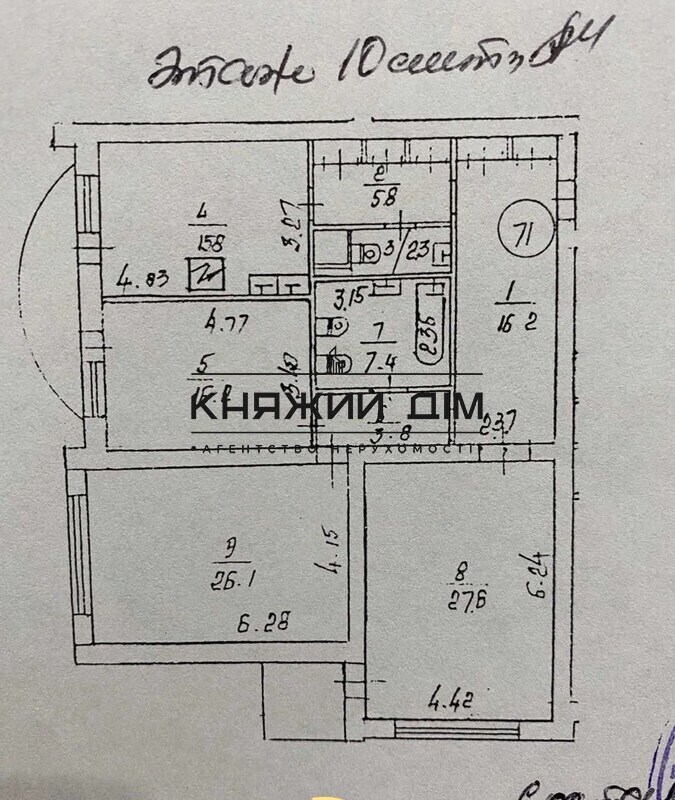 этаж 10
2
5.8
4
15.8
3.27
71
3
2.3
4.83
3.15
1
16.2
4.77
7
7.4
2.35
5
3.8
2.37
КНЯЖИЙ ДІМ
•АГЕНТСТВО НЕРУХОМОСТІ•
9
26.1
4.15
8
27.6
6.24
6.28
4.42